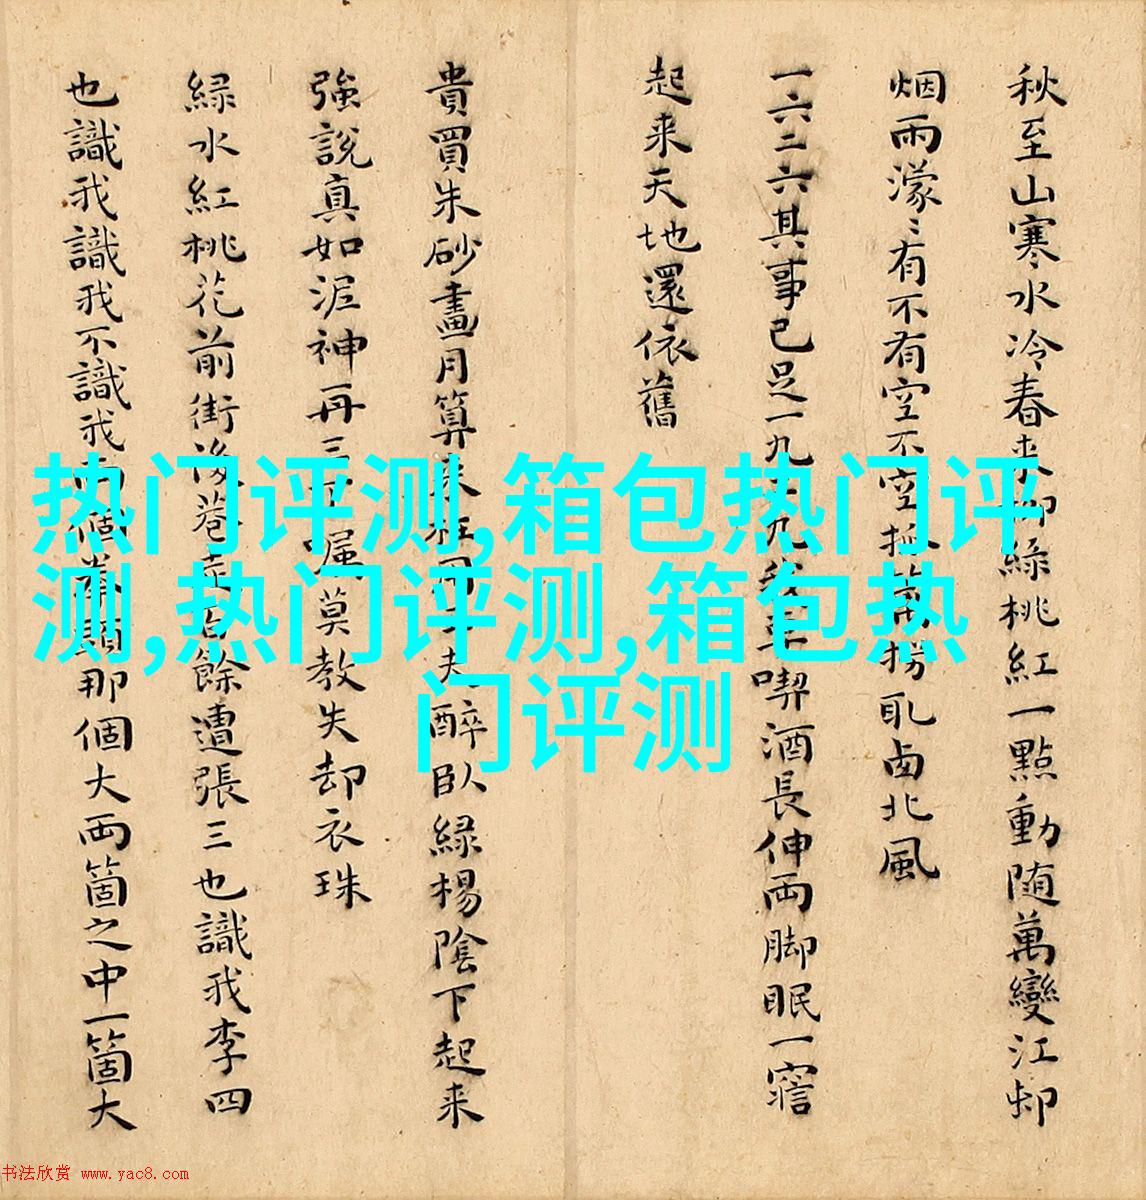 秋至山寒水冷春来
緑桃紅一點動随萬變江邨
烟雨濛〻有不有空不空
耴卤北風
一六二六其事已足一九
喫酒長伸両脚眠一寤
起来天地還依舊
貴買朱砂畫月算来
夫醉臥緑楊陰下起来
強說真如泥神再三
嘱莫教失却衣珠
緑水紅桃花前街後巷走百餘遭張三也識我李四
也識我識我不識我両個拳頭那個大両箇之中一箇大
热门评测,箱包热门评
测,热门评测,箱包热
门评测
书法欣赏 www.yac8.com